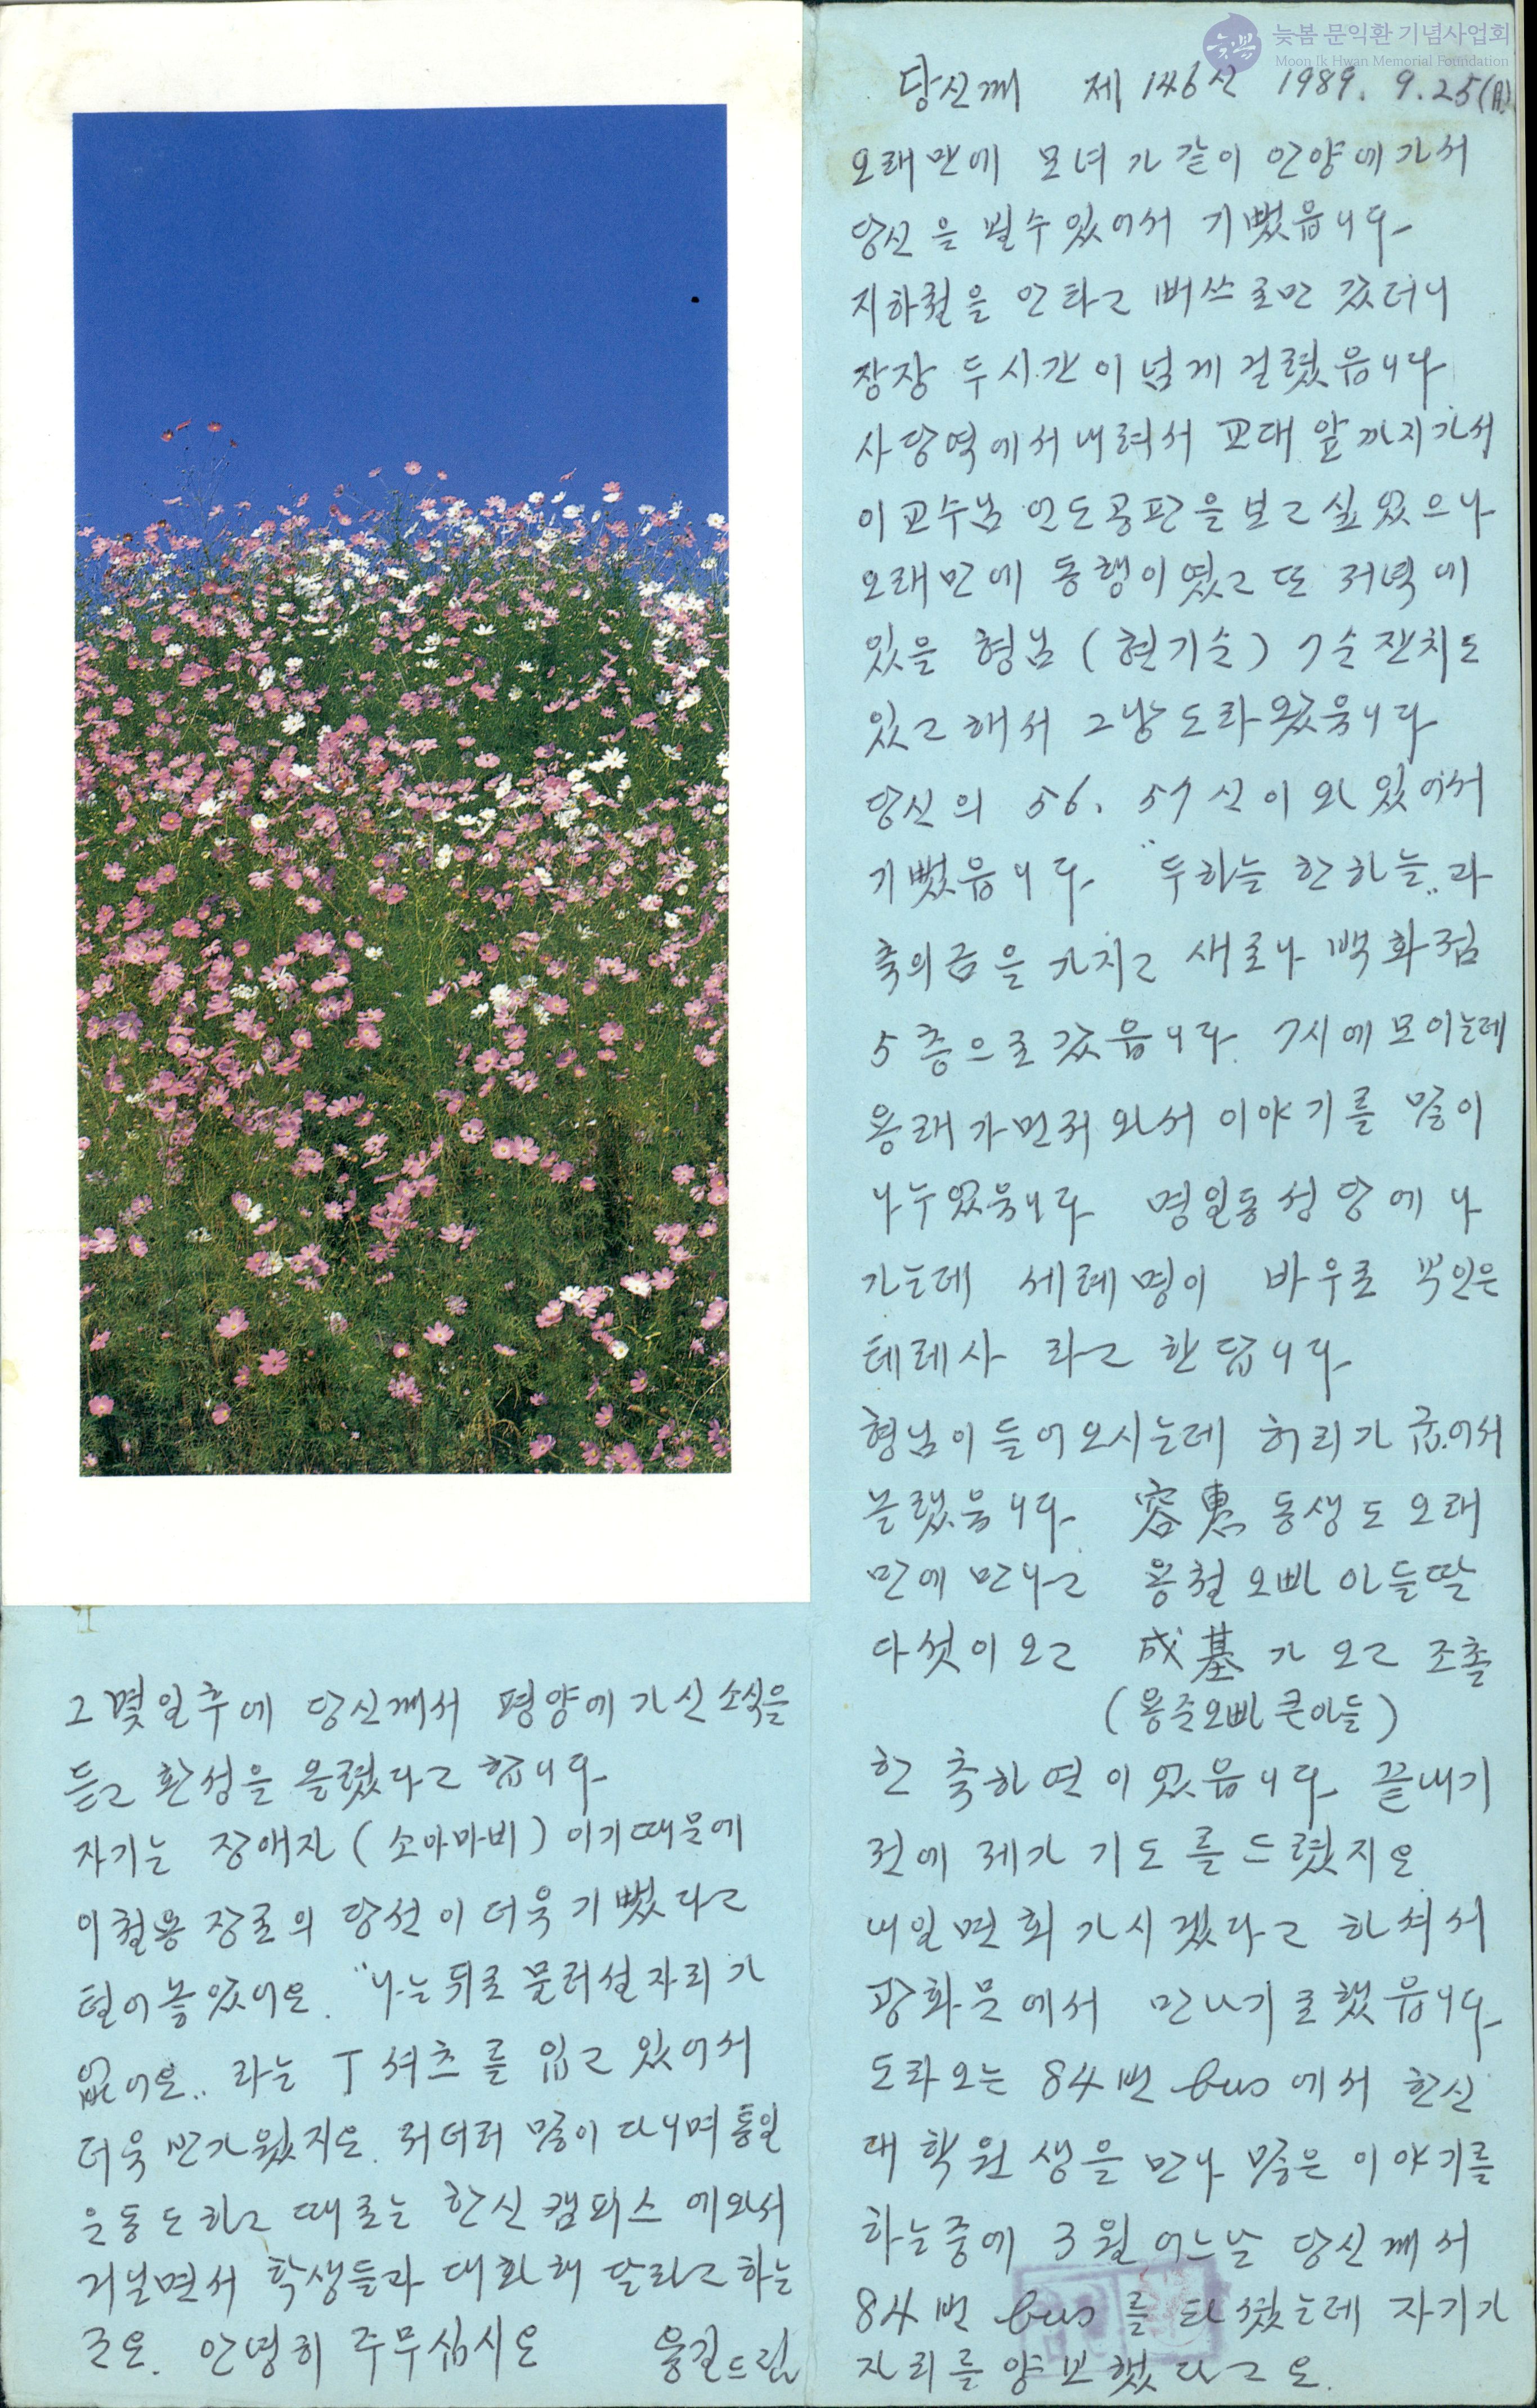 늦봄 문익환 기념사업회
Moon Ik Hwan Memorial Foundation
늦봄
당신께 제146신 1989. 9.25(月)
오래만에 모녀가 같이 안양에 가서
당신을 뵐수 있어서 기뻤읍니다.
지하철을 안타고 뻐쓰로만 갔더니
장장 두시간이 넘게 걸렸읍니다.
사당역에서 내려서 교대 앞까지 가서
이교수님 언도공판을 보고 싶었으나
오래만에 동행이였고 또 저녁에
있을 형님 (현기순) 7순 잔치도
있고 해서 그냥 도라왔읍니다.
당신의 56. 57신이 와 있어서
기뻤읍니다. "두하늘 한하늘"과
축의금을 가지고 새로나 백화점
5층으로 갔읍니다. 7시에 모이는데
용래가 먼저 와서 이야기를 많이
나누었읍니다. 명일동성당에 나
가는데 세례명이 바우로 부인은
테레사 라고 한답니다.
형님이 들어오시는데 허리가 굽어서
놀랬읍니다. 容惠 동생도 오래
만에 만나고 용철오빠 아들딸
다섯이 오고 成基가 오고 조촐
(용준오빠 큰아들)
한 축하연이 었읍니다. 끝내기
전에 제가 기도를 드렸지요.
내일 면회 가시겠다고 하셔서
광화문에서 만나기로 했읍니다.
도라오는 84번 bus에서 한신
대학원생을 만나 많은 이야기를
하는중에 3월 어느날 당신께서
84번 bus를 타셨는데 자기가
자리를 양보했다고요.
그 몇일후에 당신께서 평양에 가신 소식을
듣고 환성을 올렸다고 합니다.
자기는 장애자 (소아마비) 이기때문에
이철용 장로의 당선이 더욱 기뻤다고
털어놓았어요. "나는 뒤로 물러설자리가
없어요" 라는 T셔츠를 입고 있어서
더욱 반가웠지요. 저더러 많이 다니며 통일
운동도 하고 때로는 한신캠퍼스에와서
거닐면서 학생들과 대화해 달라고 하는
군요. 안녕히 주무십시요 용길드림